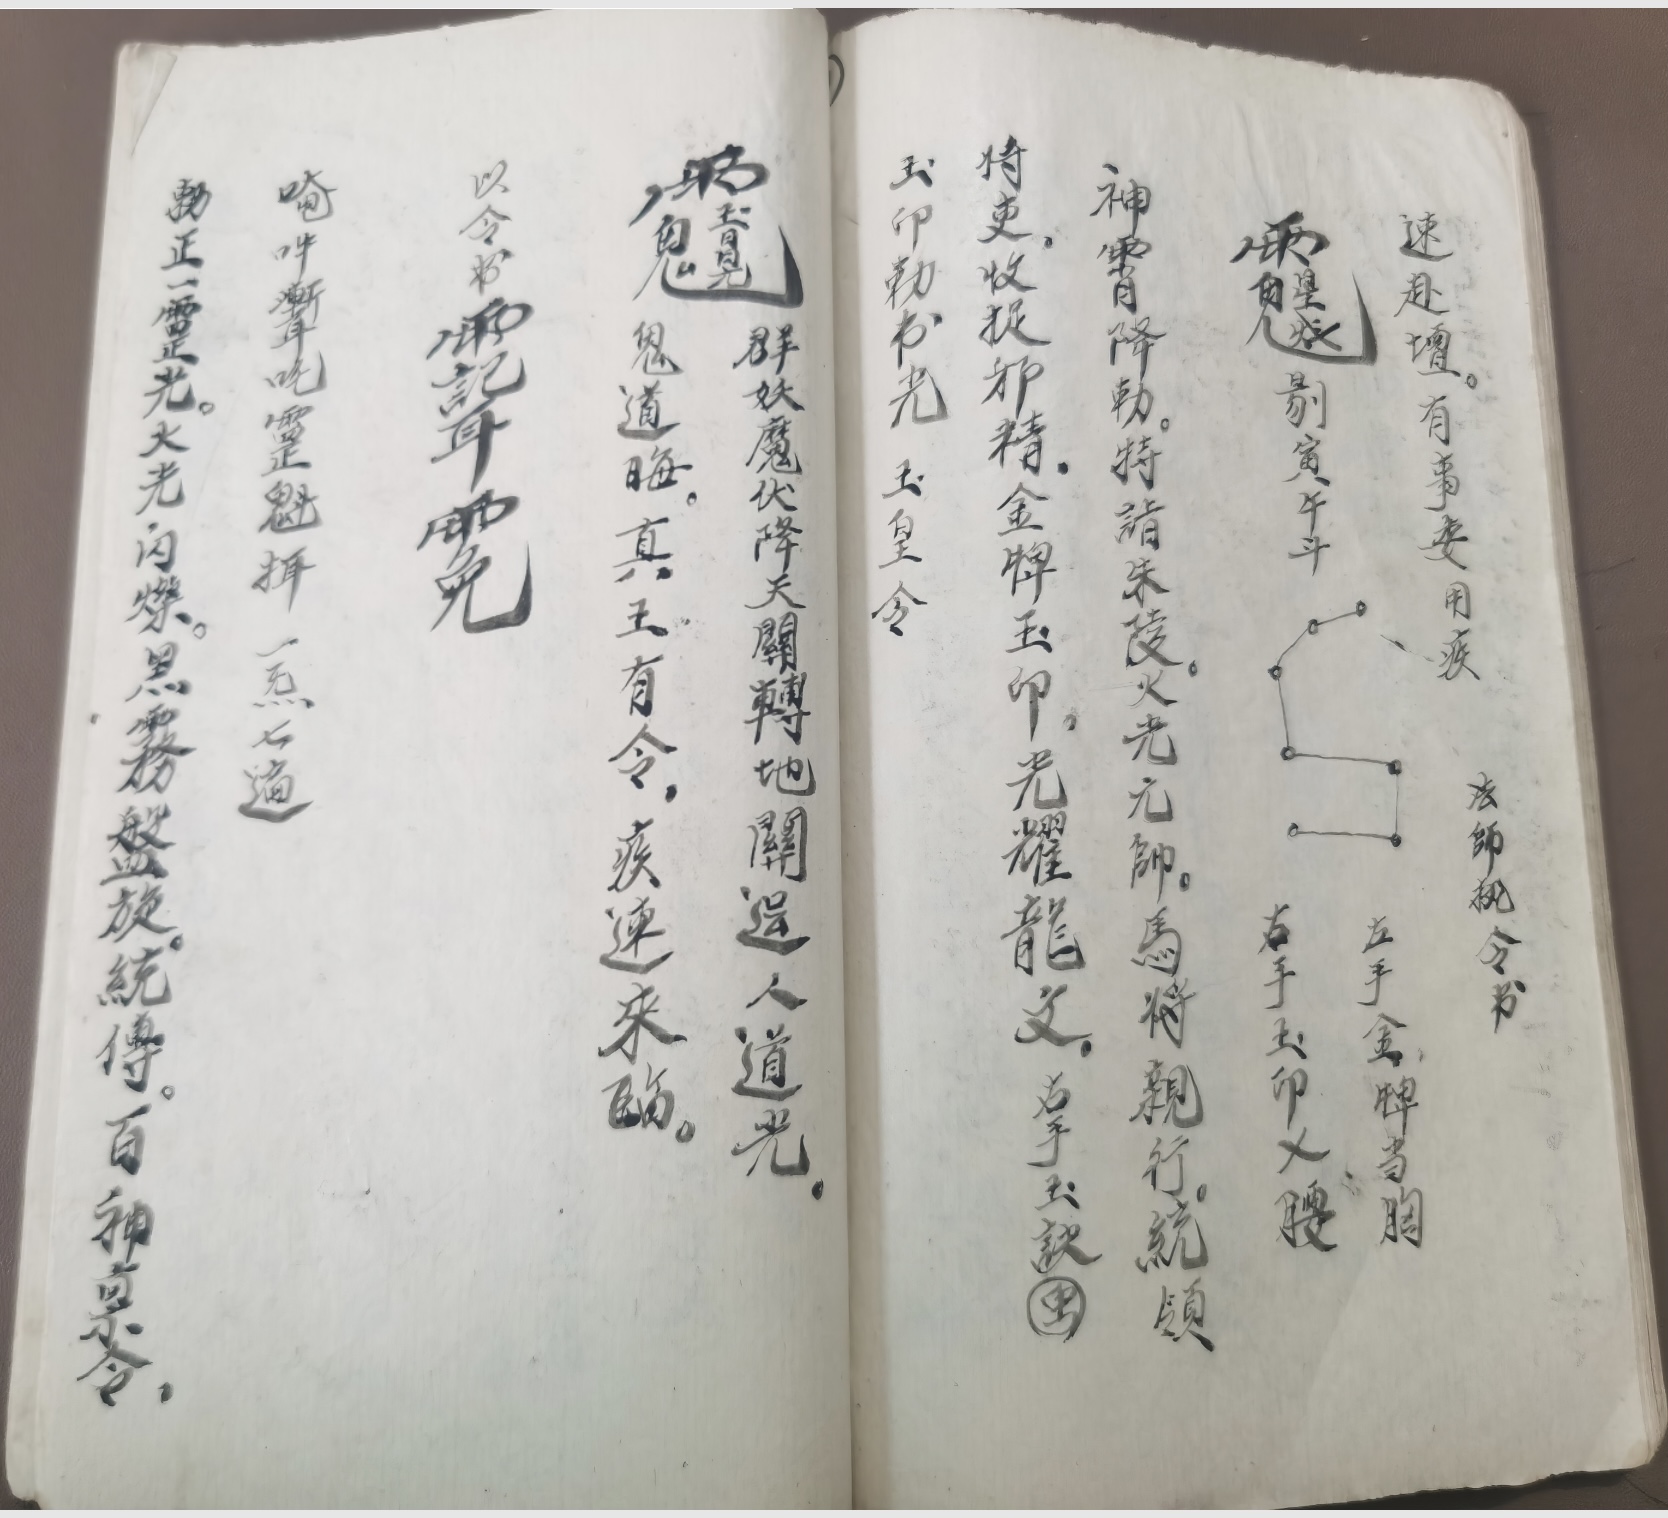 速赴壇。有事委用疾
法師執令书
剔寅午斗
左手金牌当胸
右手玉印乂腰
神霄降勅。特詣朱陵火光元帥。馬将親行。統領
将吏。收捉邪精。金牌玉印。光耀龍文。右手玉訣
玉印勅书光 玉皇令
群妖魔伏降天關轉地關逞人道光。
鬼道晦。真王有令。疾速来臨。
以令书
唵吽
一炁七道
勅正一靈光。火光闪爍。黑霧盤旋。統傳。百神稟令。